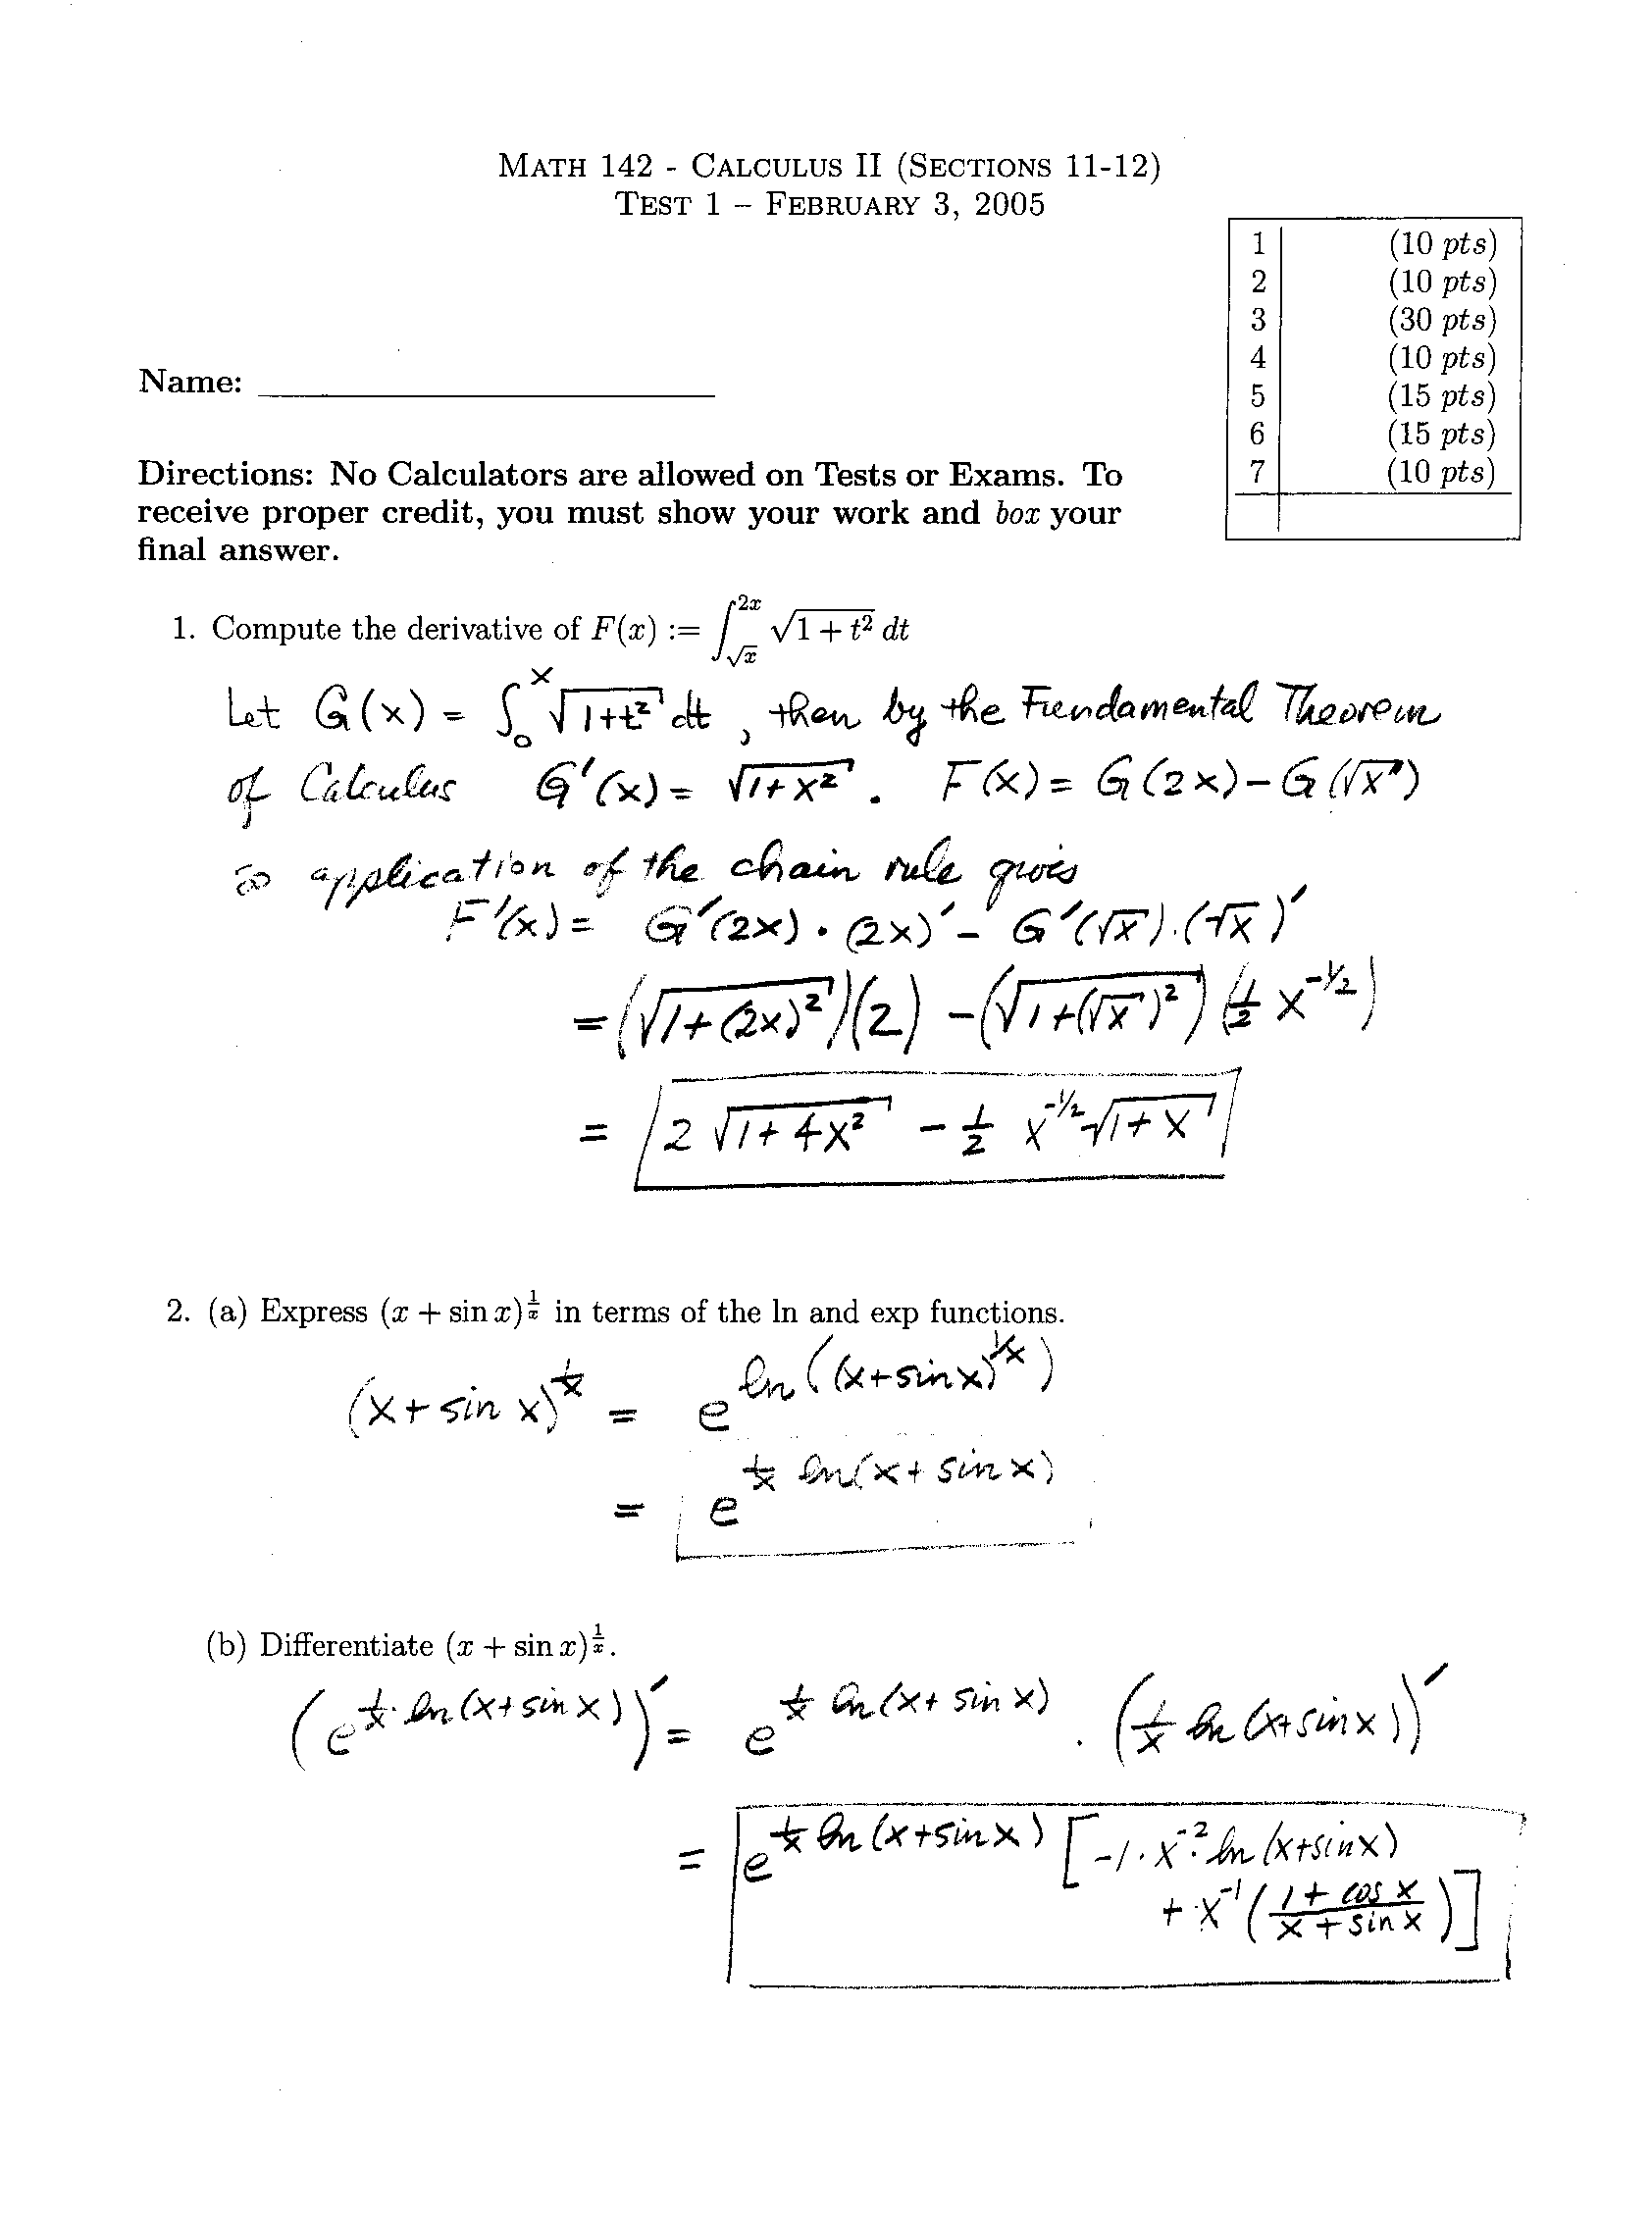 MATH 142 - CALCULUS II (SECTIONS 11-12)
TEST 1 – FEBRUARY 3, 2005
1 (10 pts)
2 (10 pts)
3 (30 pts)
4 (10 pts)
5 (15 pts)
6 (15 pts)
7 (10 pts)
Name:
Directions: No Calculators are allowed on Tests or Exams. To
receive proper credit, you must show your work and box your
final answer.
1. Compute the derivative of F(x) := ∫_{√x}^{2x} √(1 + t²) dt
Let G(x) = ∫_0^x √(1+t²) dt, then by the Fundamental Theorem
of Calculus G'(x) = √(1+x²). F(x) = G(2x) - G(√x)
so application of the chain rule gives
F'(x) = G'(2x) · (2x)' - G'(√x) · (√x)'
= (√(1+(2x)²))(2) - (√(1+(√x)²))(1/2 x^{-1/2})
= 2 √(1+4x²) - 1/2 x^{-1/2} √(1+x)
2. (a) Express (x + sin x)^{1/x} in terms of the ln and exp functions.
(x + sin x)^{1/x} = e^{ln((x+sin x)^{1/x})}
= e^{1/x ln(x + sin x)}
(b) Differentiate (x + sin x)^{1/x}.
(e^{1/x · ln(x+sin x)})' = e^{1/x ln(x+sin x)} · (1/x ln(x+sin x))'
= e^{1/x ln(x+sin x)} [-1 · x^{-2} · ln(x+sin x)
+ x^{-1} ((1 + cos x)/(x + sin x))]